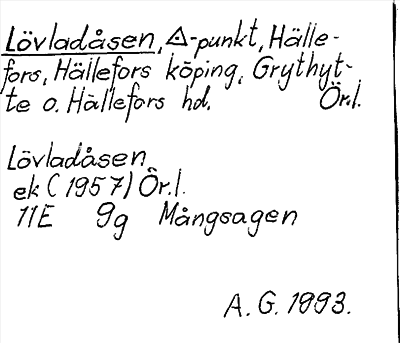 Lövladåsen, △-punkt, Hälle-
fors, Hällefors köping, Grythyt-
te o. Hällefors hd. Ör.l.
Lövladåsen
ek (1957) Ör.l.
11E 9g Mångsagen
A. G. 1993.